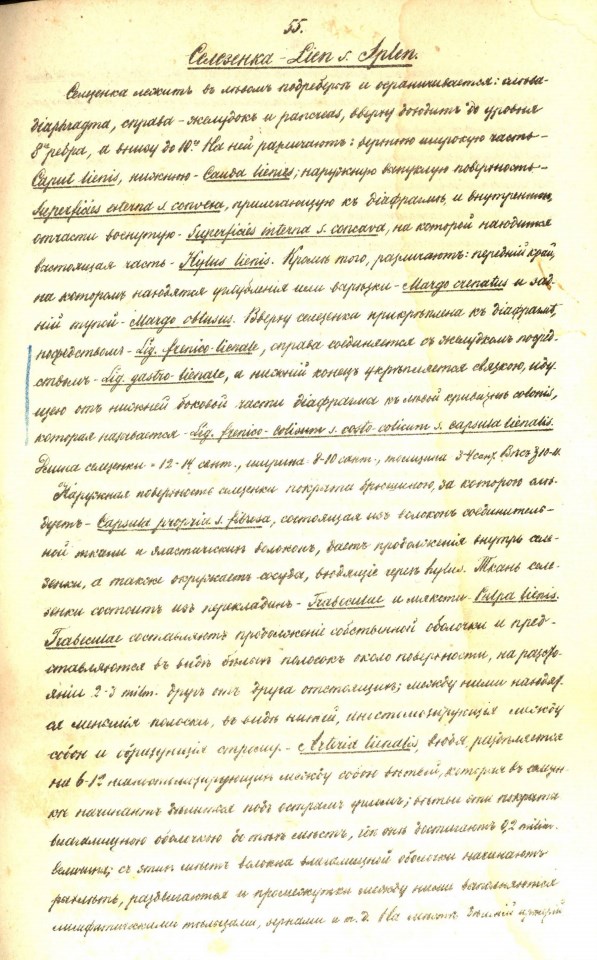 55.
Селезенка - Lien s. Splen.
Селезенка лежитъ въ лѣвомъ подреберьѣ и ограничивается: слѣва-
diaphragma, справа - желудокъ и pancreas, вверху доходитъ до уровня
8го ребра, а внизу до 10го На ней различаютъ: верхнюю широкую часть-
Caput lienis, нижнюю - Cauda lienis; наружную выпуклую поверхность-
Superficies externa s. convexa, прилегающую къ діафрагмѣ, и внутреннюю,
отчасти вогнутую - Superficies interna s. concava, на которой находится
часть - Hylus lienis. Кромѣ того, различаютъ: передній край,
на которомъ находятся углубленія или вырѣзки - Margo crenatus и зад-
ній тупой - Margo obtusus. Вверху селезенка прикрѣплена къ діафрагмѣ,
посредствомъ - Lig. frenico-lienale, справа соединяется съ желудкомъ посред-
ствомъ - Lig. gastro-lienale, и нижній конецъ укрѣпляется связкою, иду-
щею отъ нижней боковой части діафрагмы къ лѣвой кривизнѣ coloniś,
которая называется - Lig. frenico-colicum s. costo-colicum s. capsula lienalis.
Длина селезенки = 12-14 сент., ширина 8-10 сент., толщина 3-4 сент. Вѣсъ
Наружная поверхность селезенки покрыта брюшиною, за которою слѣ-
дуетъ - Capsula propria s. fibrosa, состоящая изъ волоконъ соединитель-
ной ткани и эластическихъ волоконъ, даетъ продолженія внутрь селе-
зенки, а также окружаетъ сосуды, входящіе черезъ hylus. Ткань селе-
зенки состоитъ изъ перекладинъ - Trabeculae и мякоти - Pulpa lienis.
Trabeculae составляютъ продолженіе собственной оболочки и пред-
ставляются въ видѣ бѣлыхъ полосокъ около поверхности, на разсто-
яніи 2-3 milm. другъ отъ друга отстоящихъ; между ними находят-
ся меньшія полоски, въ видѣ нитей, анастомозирующія между
собою и образующія строму. - Arteria lienalis, входя, раздѣляется
на 6-10 не анастомозирующихъ между собою вѣтвей, которыя въ
начинаютъ дѣлиться подъ острымъ угломъ; вѣтви эти покрыты
влагалищною оболочкою до тѣхъ мѣстъ, гдѣ онѣ достигаютъ 0,2 milim.
величины; съ этихъ мѣстъ волокна влагалищной оболочки начинаютъ
рѣдѣть, раздвигаются и промежутки между ними заполняются
лимфатическими тѣльцами, зернами и т. д. На мѣстѣ дѣленій артерій